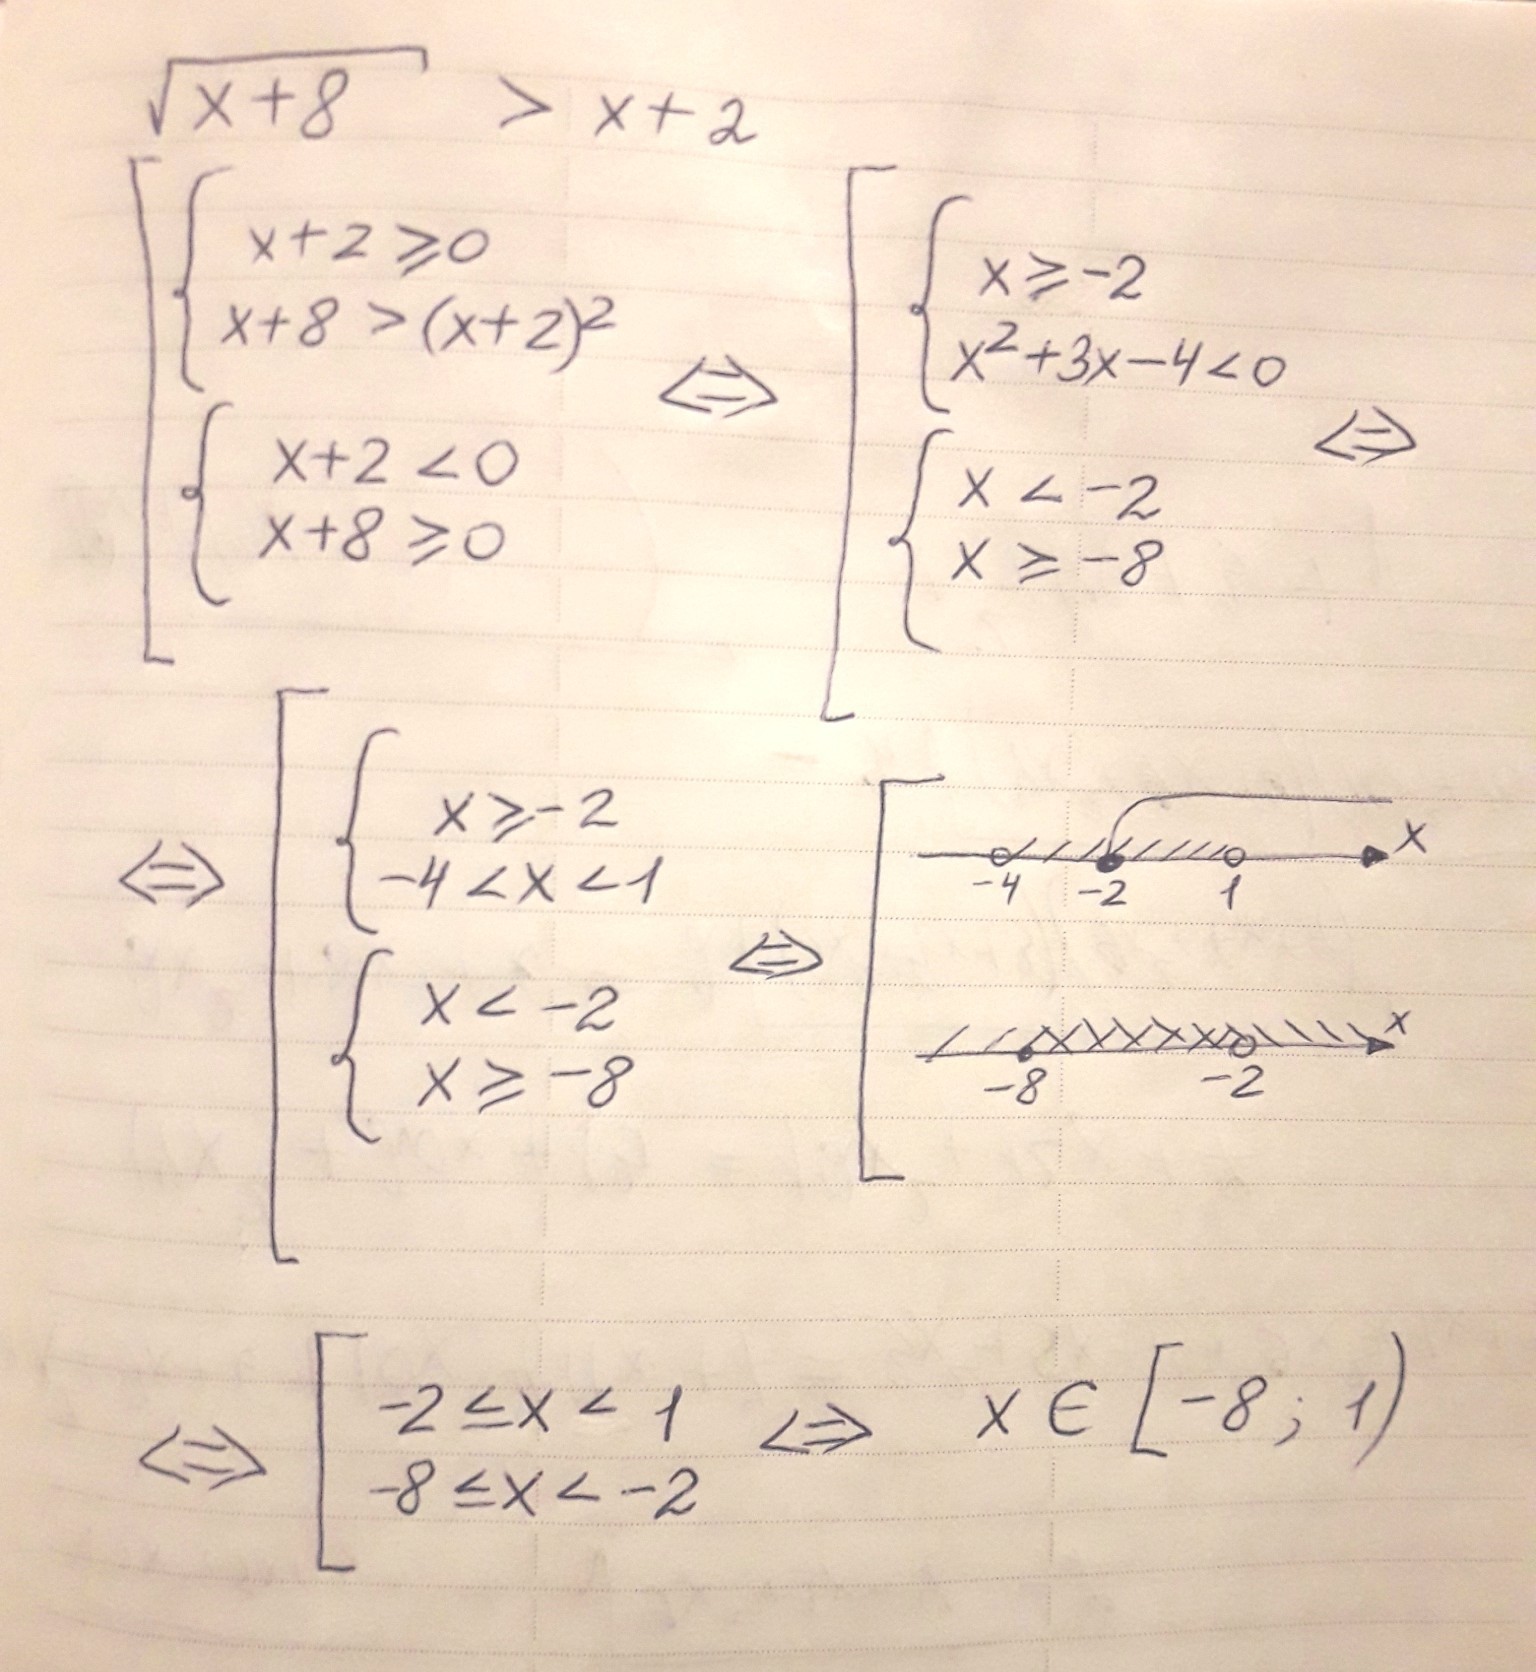 √x+8 > x+2
x+2 ⩾ 0
x+8 > (x+2)²
x+2 < 0
x+8 ⩾ 0
⇔
x ⩾ -2
x²+3x-4<0
x < -2
x ⩾ -8
⇔
⇔
x ⩾ -2
-4 < x < 1
x < -2
x ⩾ -8
⇔
x
-4 -2 1
x
-8 -2
⇔
-2 ≤ x < 1
-8 ≤ x < -2
⇔ x ∈ [-8; 1)